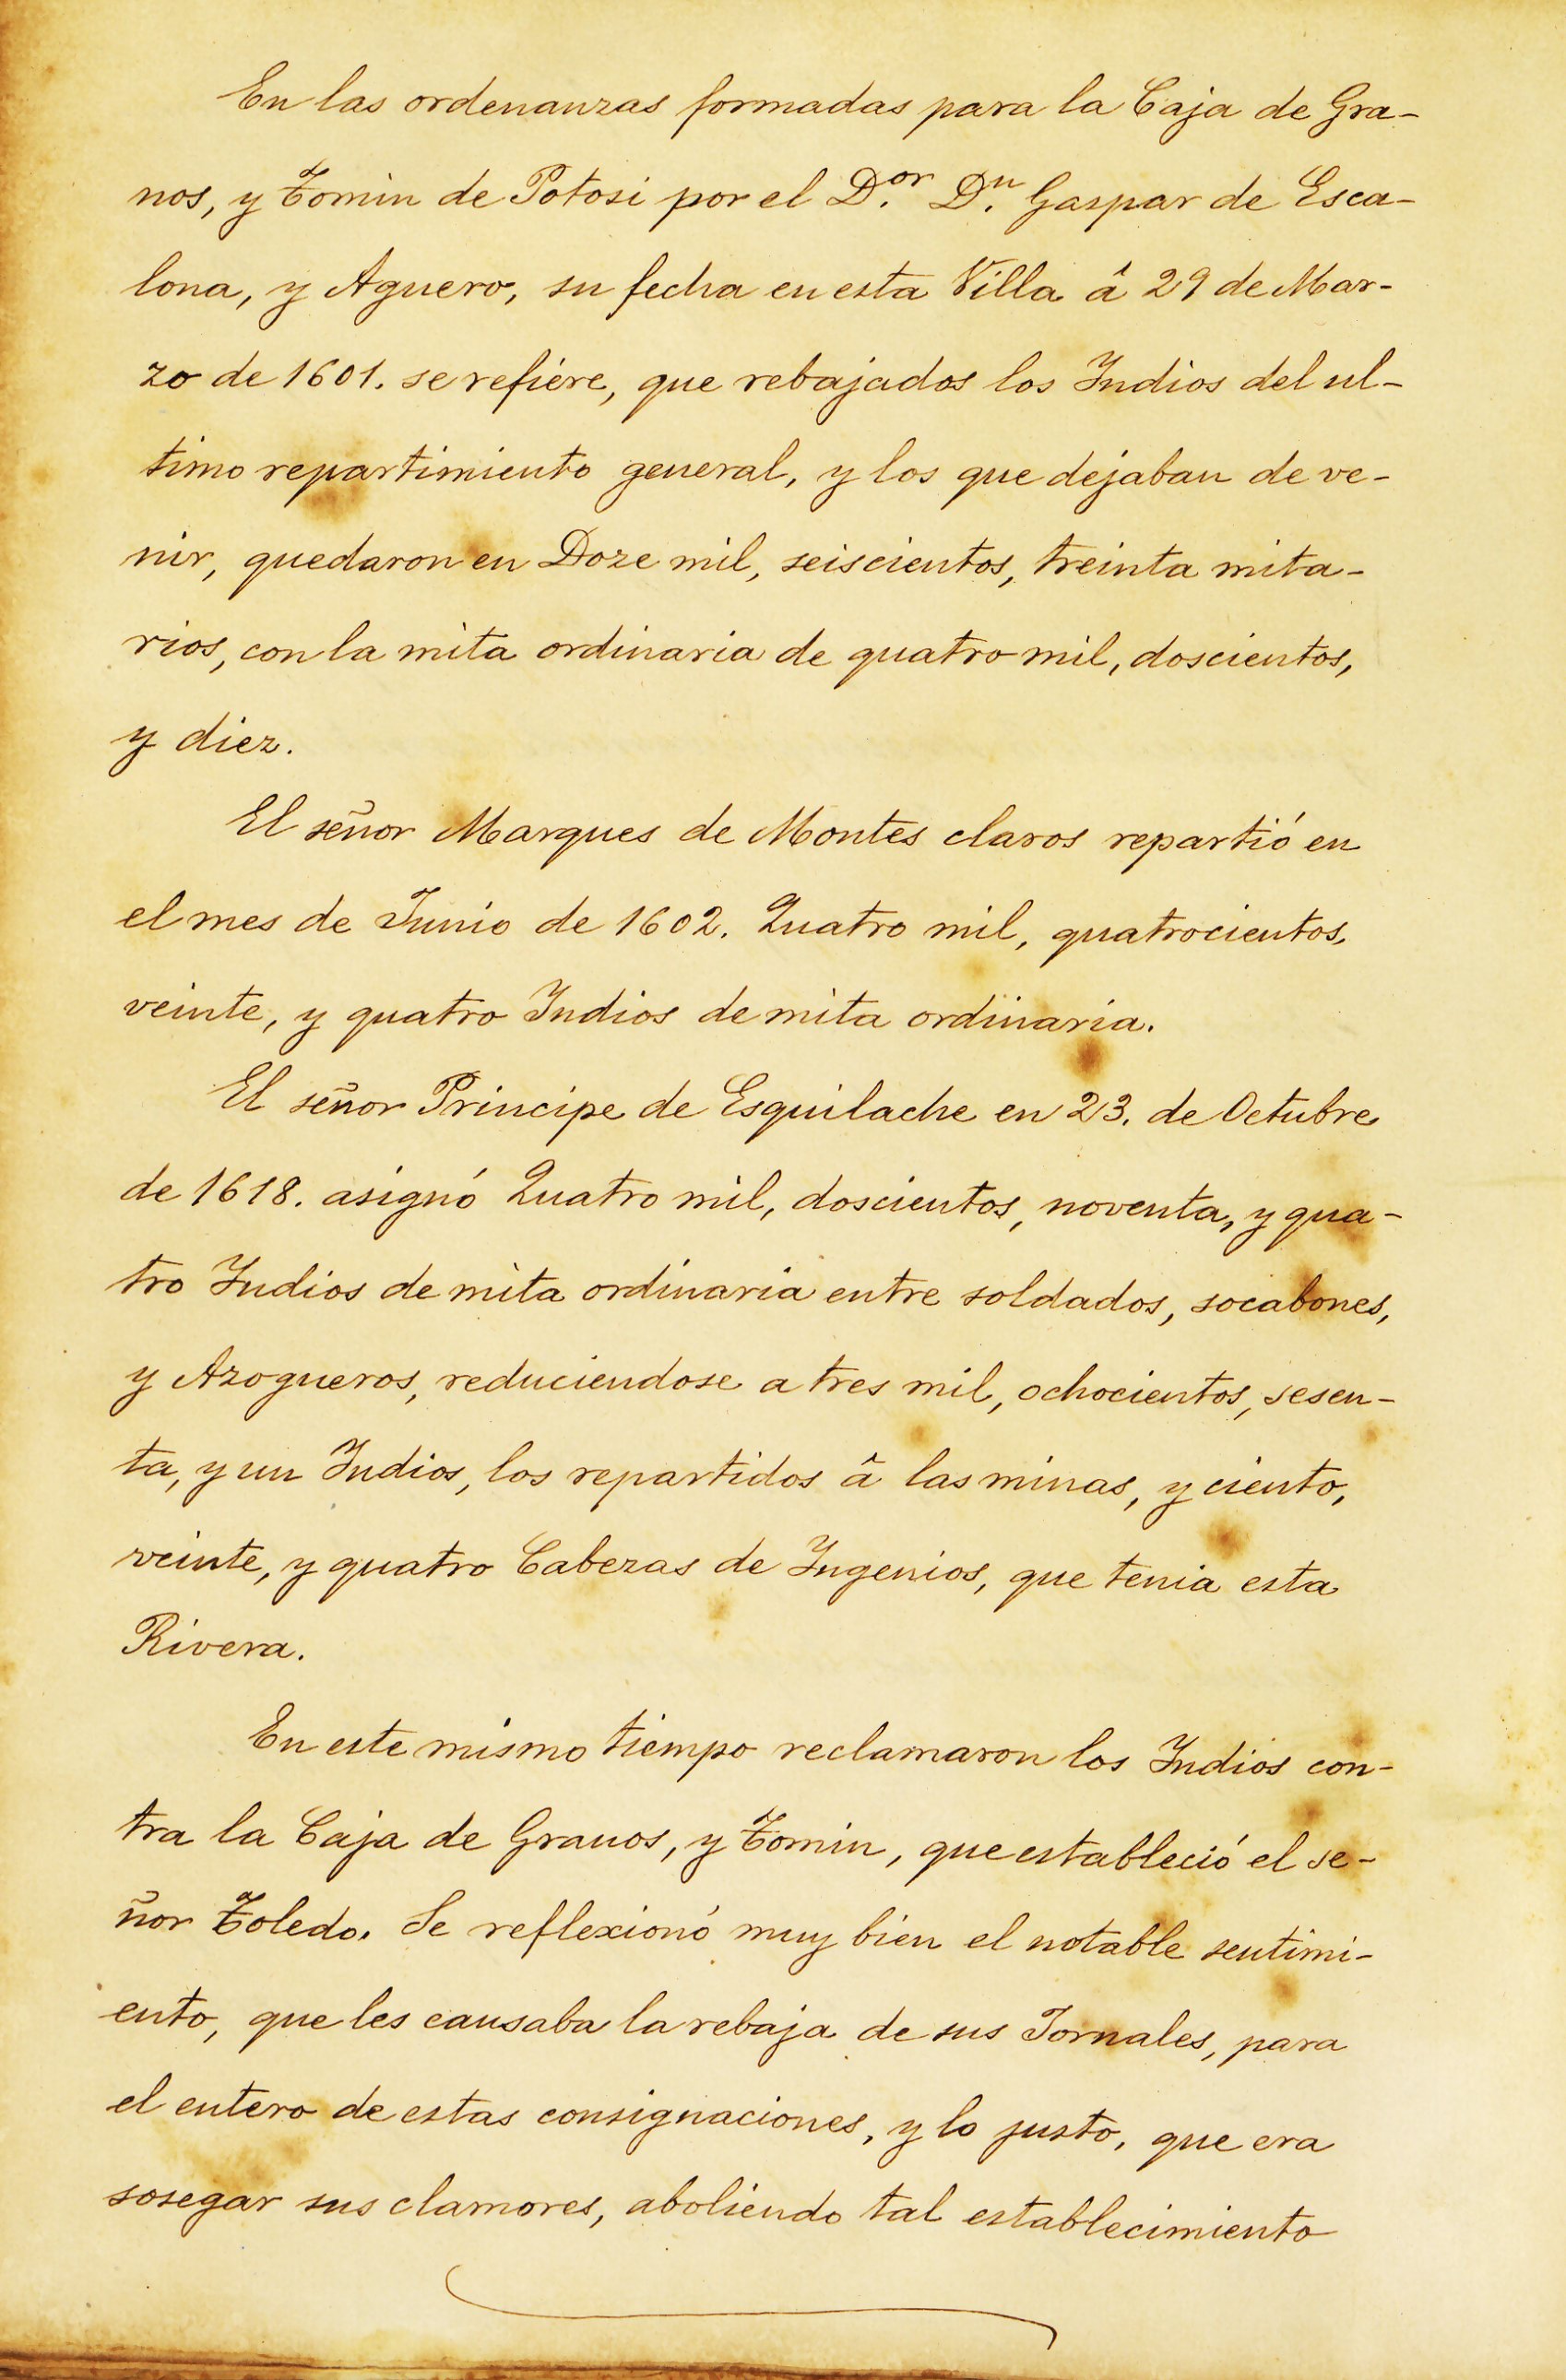 En las ordenanzas formadas para la Caja de Gra-
nos, y Tomin de Potosi por el D.or D.n Gaspar de Esca-
lona, y Aguero, su fecha en esta Villa â 29 de Mar-
zo de 1601. se refiere, que rebajados los Indios del ul-
timo repartimiento general, y los que dejaban de ve-
nir, quedaron en Doze mil, seiscientos, treinta mita-
rios, con la mita ordinaria de quatro mil, doscientos,
y diez.
El señor Marques de Montes claros repartió en
el mes de Junio de 1602. Quatro mil, quatrocientos,
veinte, y quatro Indios de mita ordinaria.
El señor Principe de Esquilache en 23. de Octubre
de 1618. asignó Quatro mil, doscientos, noventa, y qua-
tro Indios de mita ordinaria entre soldados, socabones,
y Azogueros, reduciendose a tres mil, ochocientos, sesen-
ta, y un Indios, los repartidos â las minas, y ciento,
veinte, y quatro Cabezas de Ingenios, que tenia esta
Rivera.
En este mismo tiempo reclamaron los Indios con-
tra la Caja de Granos, y Tomin, que estableció el se-
ñor Toledo. Se reflexionó muy bien el notable sentimi-
ento, que les causaba la rebaja de sus Jornales, para
el entero de estas consignaciones, y lo justo, que era
sosegar sus clamores, aboliendo tal establecimiento